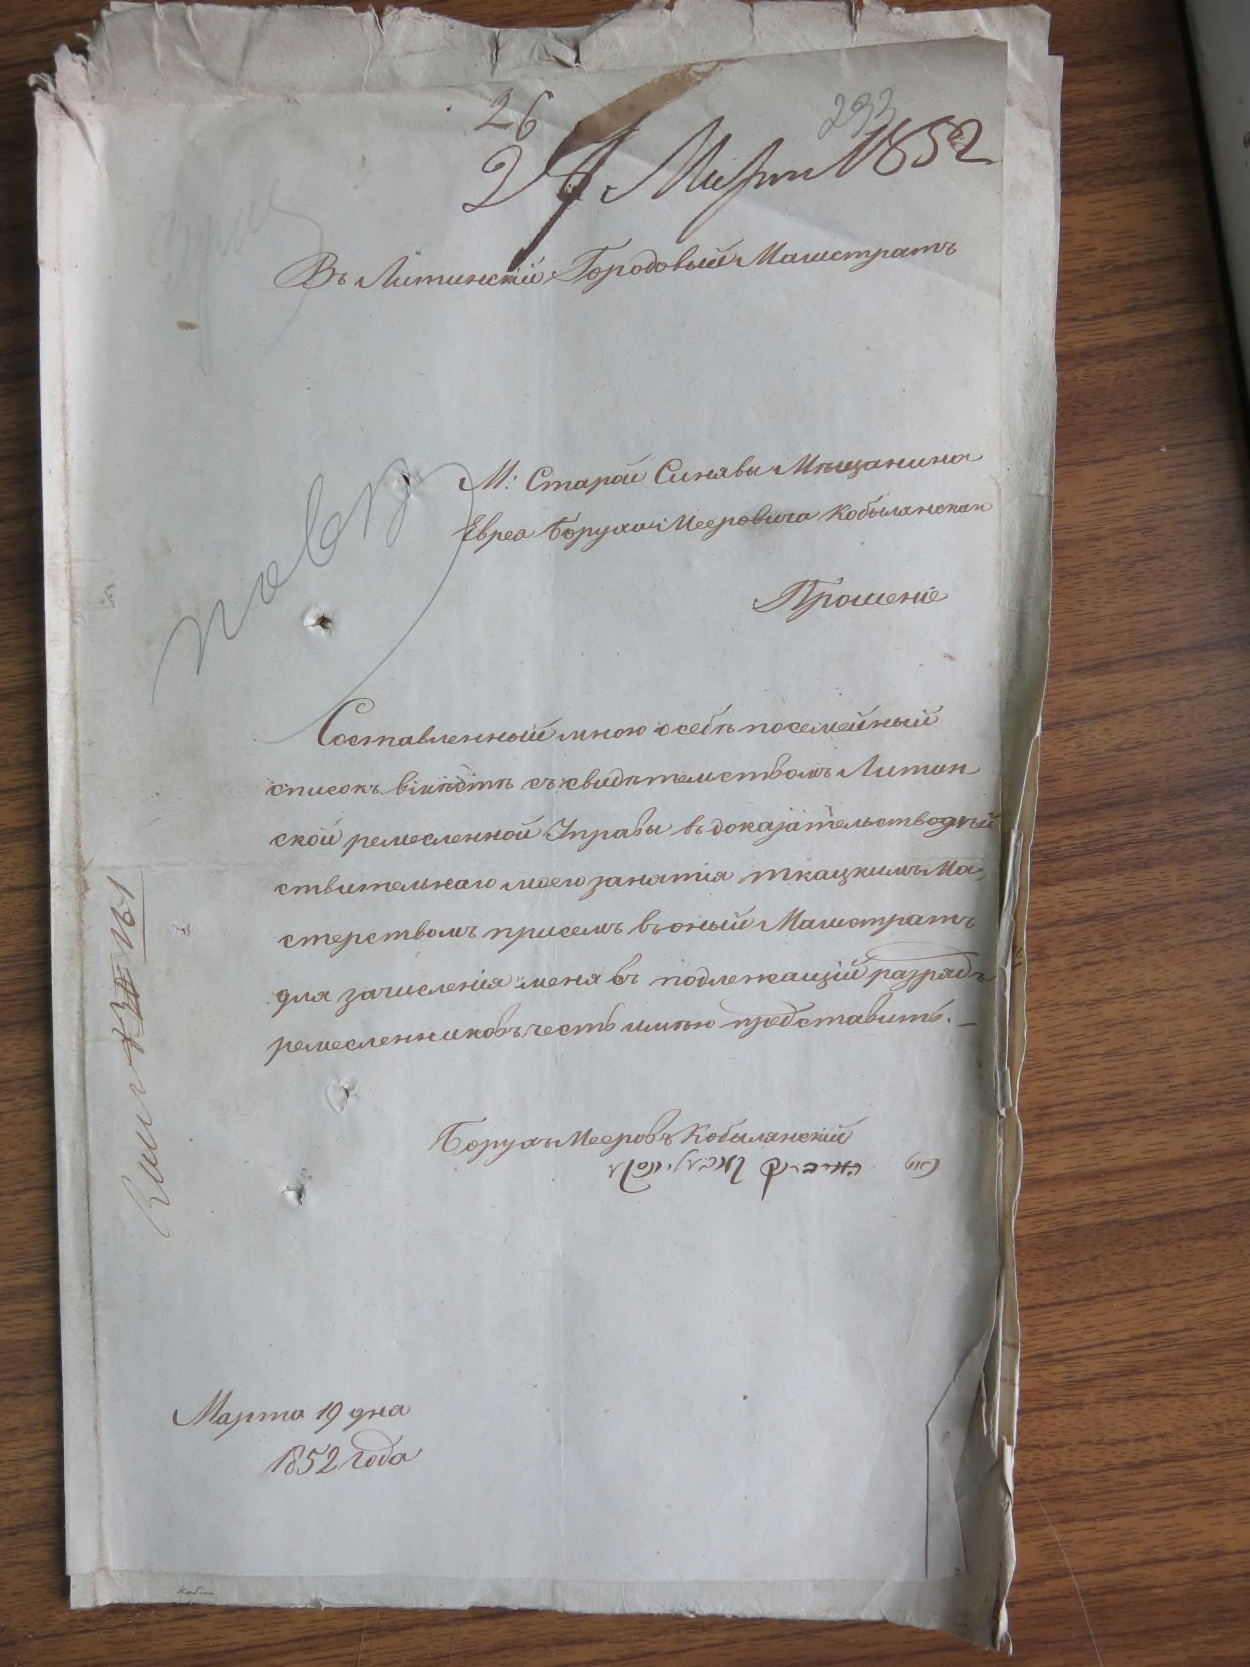 26
293
Марта 1852
Въ Литинскій Городовый Магистратъ
М: Старой Синявы Мѣщанина
Еврея Боруха Мееровича Кобылянскаго
Прошеніе
Составленный мною о себѣ посемейный
списокъ вмѣстѣ съ свидѣтельствомъ Литин
ской ремесленной Управы въ доказательство дѣй
ствительнаго моего занятія ткацкимъ Ма,
стерствомъ при семъ въ оный Магистратъ
для зачисленія меня въ подлежащій разрядъ
ремесленниковъ честь имѣю представить.
Борухъ Мееровъ Кобылянскій
Марта 19 дня
1852 года